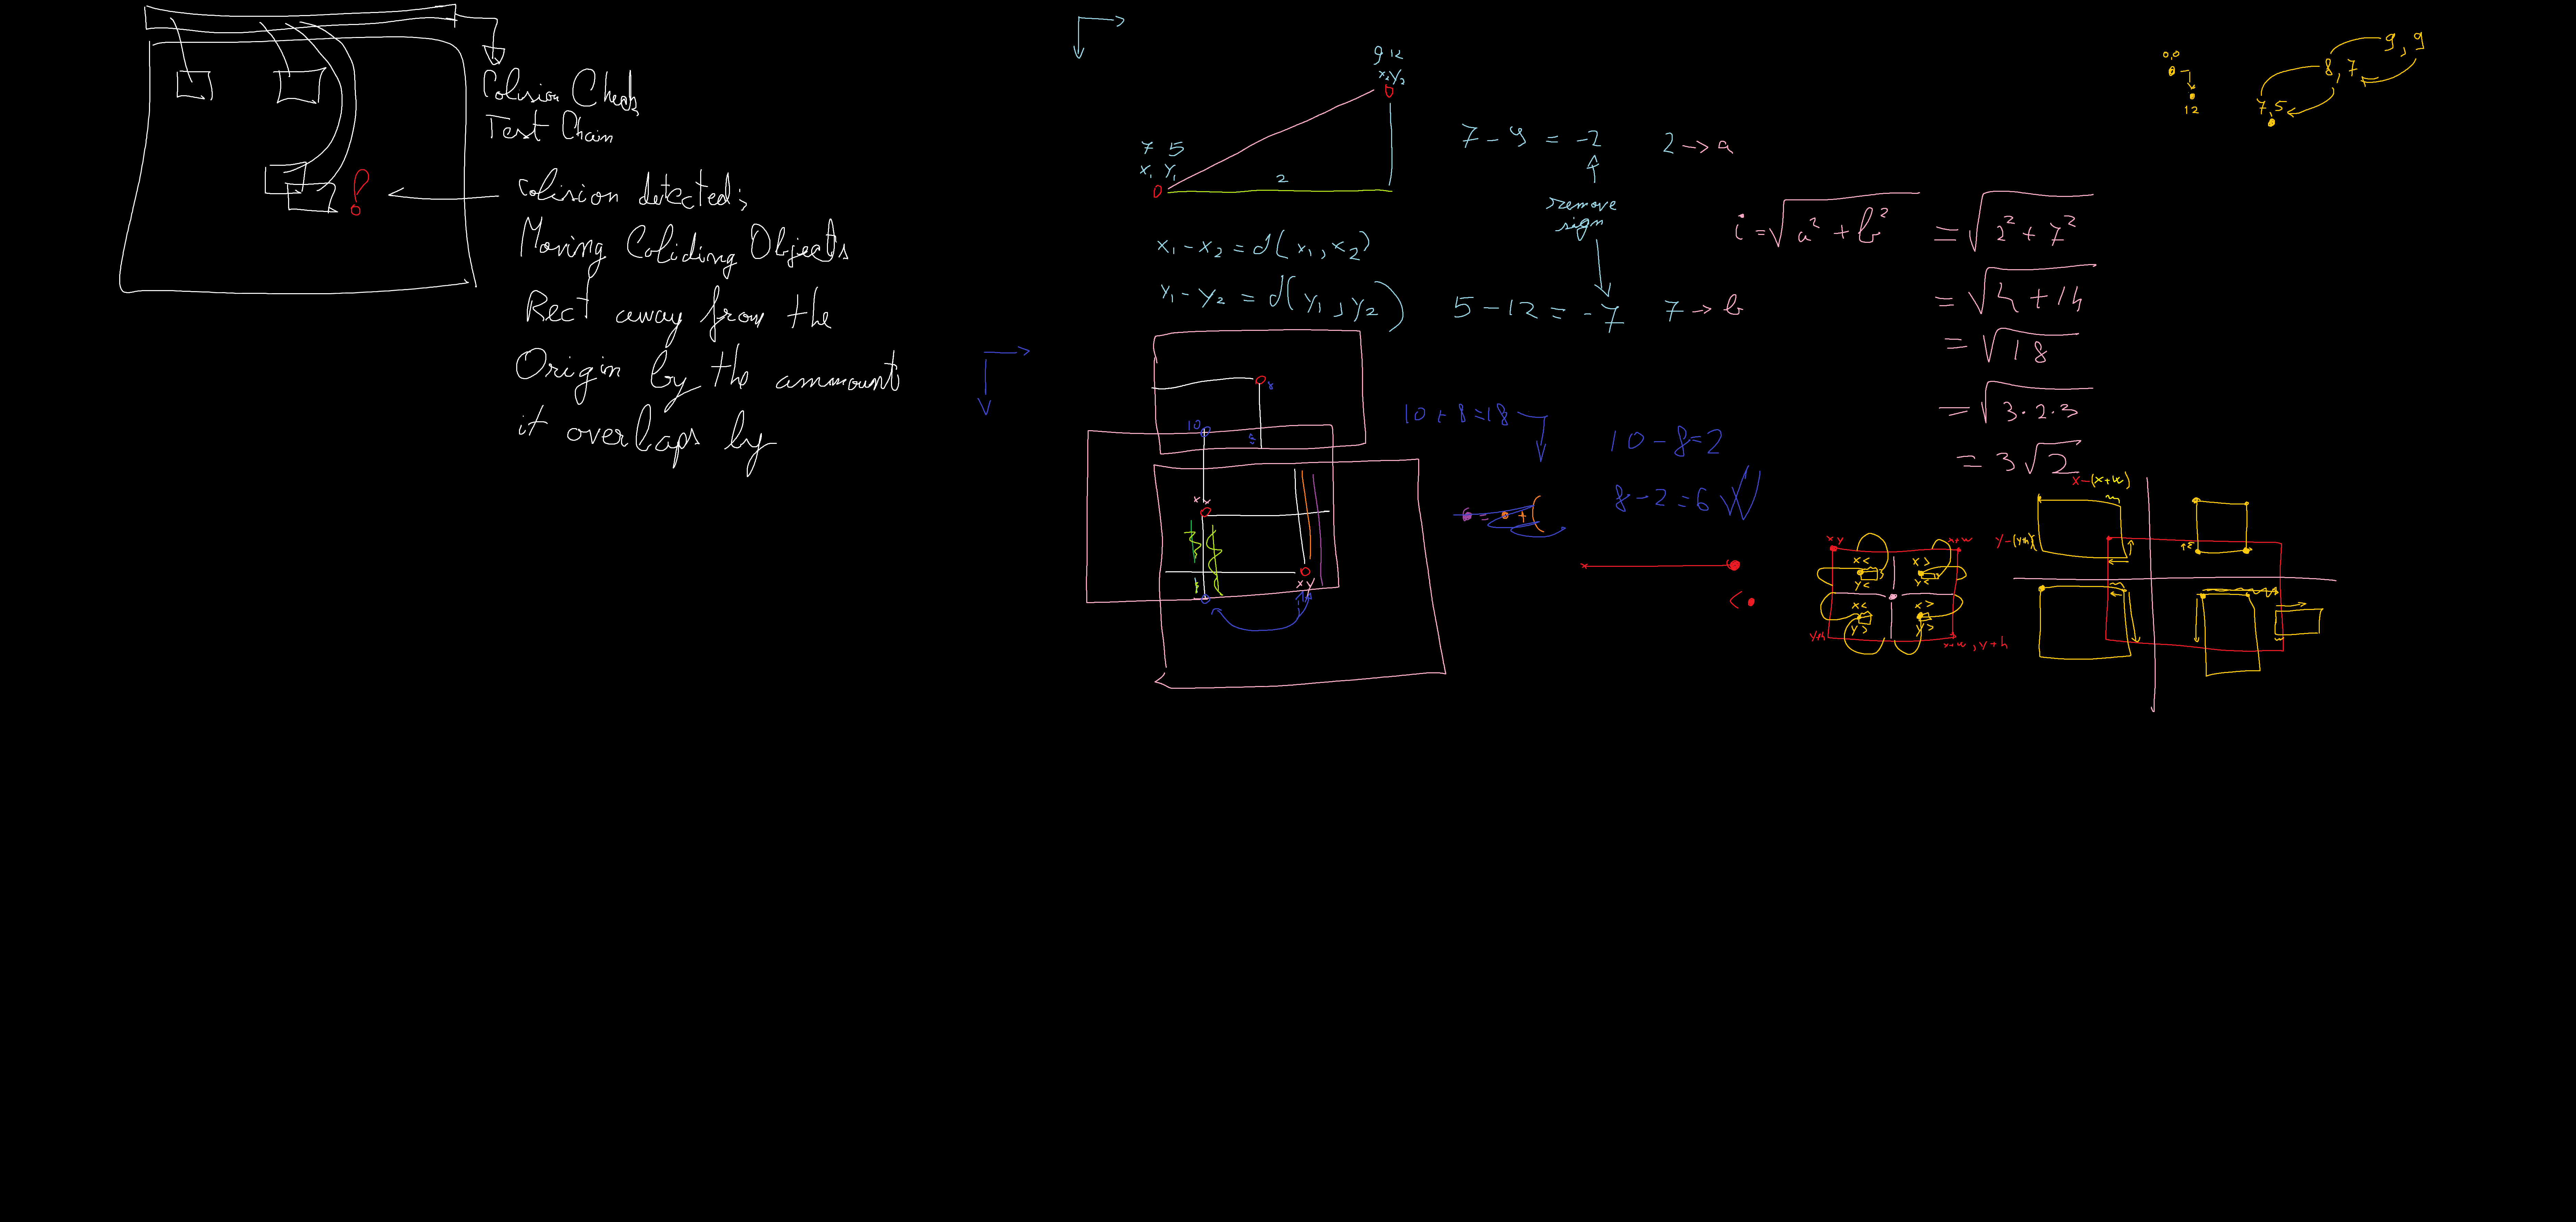 Colision Check
Test Chain
Colision detected;
Moving Coliding Objects
Rect away from the
Origin by the ammount
it overlaps by
9 12
x₂ y₂
7 5
x₁ y₁
2
x₁ - x₂ = d(x₁, x₂)
y₁ - y₂ = d(y₁, y₂)
7 - 9 = -2
2 → a
remove
sign
5 - 12 = -7
7 → b
i = √a² + b² = √2² + 7²
= √4 + 14
= √18
= √3·2·3
= 3√2
0,0
12
9, 9
8, 7
7,5
8
10
x y
x y
10 + 8 = 18
10 - 8 = 2
8 - 2 = 6
x y
x+w
x <
y <
x >
y <
x <
y >
x >
y >
y+h
x+w, y+h
x-(x+w)
y-(y+h)